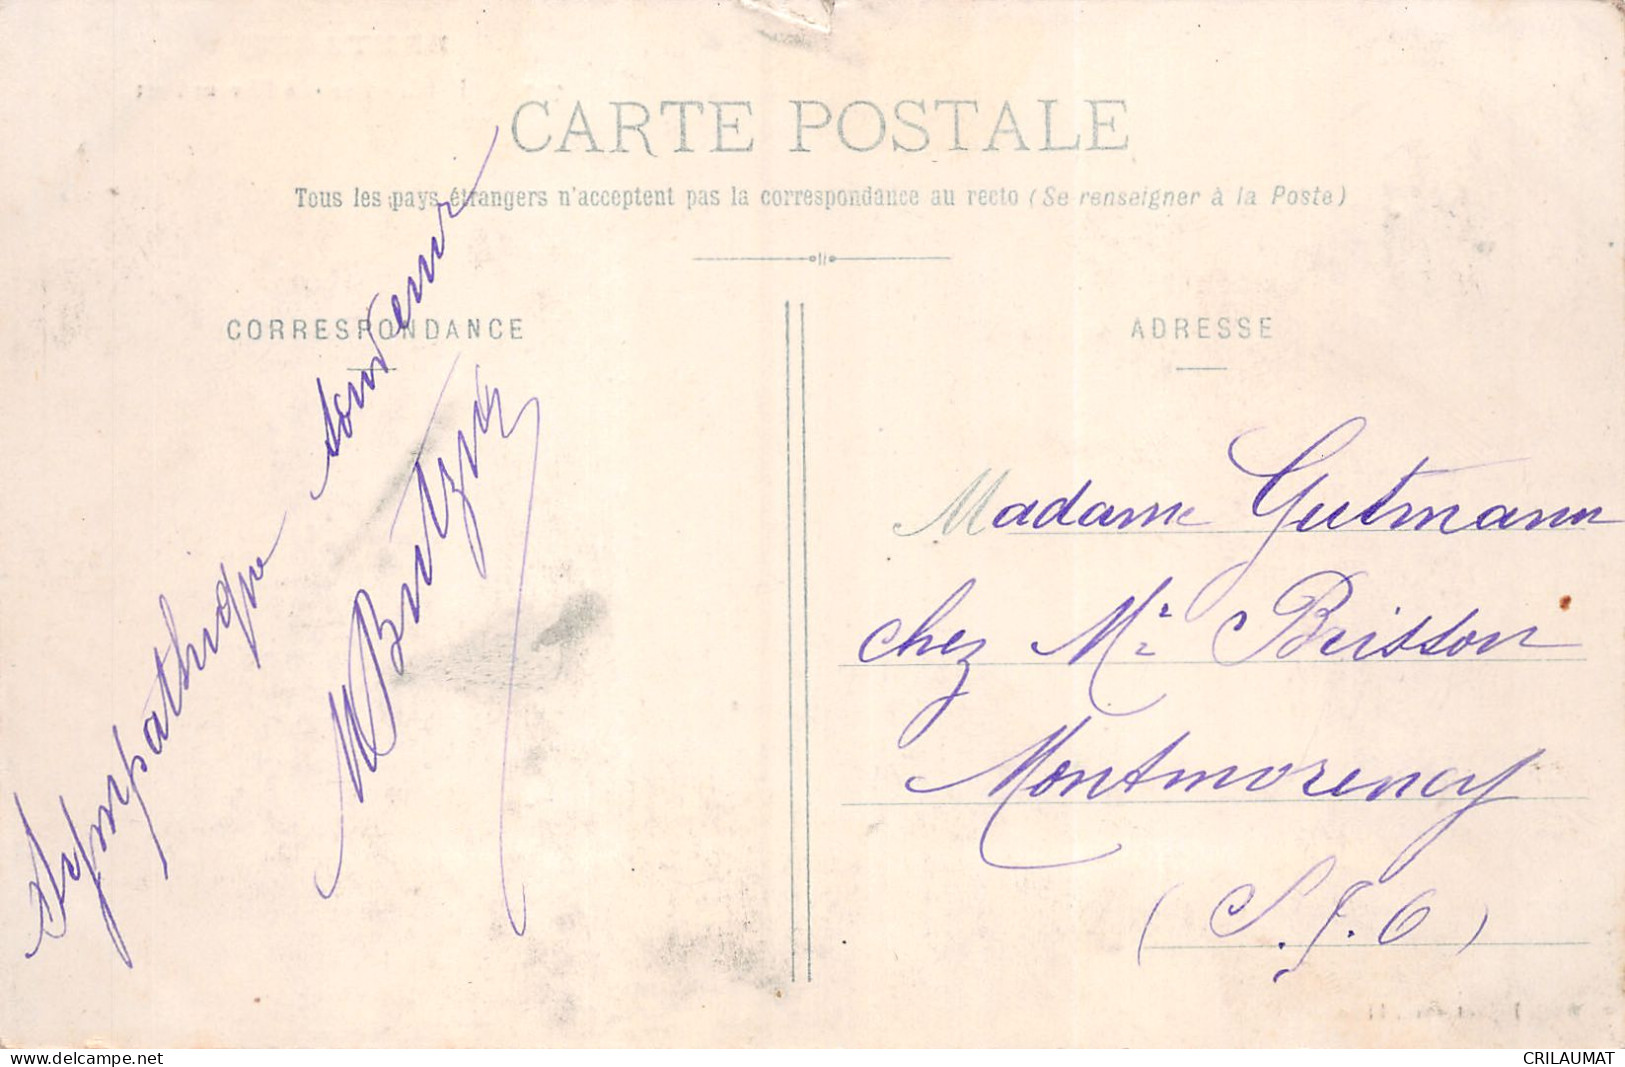 CARTE POSTALE
Tous les pays étrangers n'acceptent pas la correspondance au recto (Se renseigner à la Poste)
CORRESPONDANCE
ADRESSE
Sympathique souvenir
Madame Gutmann
chez Mr Brisson
Montmorency
(S. & O)
www.delcampe.net
CRILAUMAT